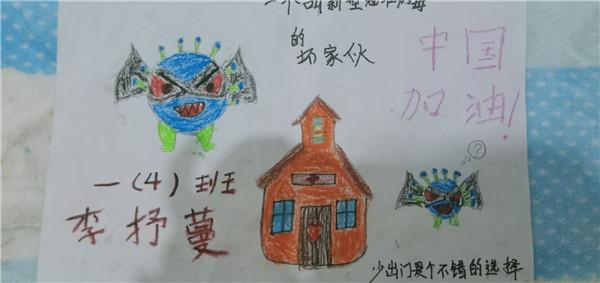 一个叫新型冠状病毒
的
坏家伙
中国
加油!
?
一(4)班
李抒蔓
少出门是个不错的选择